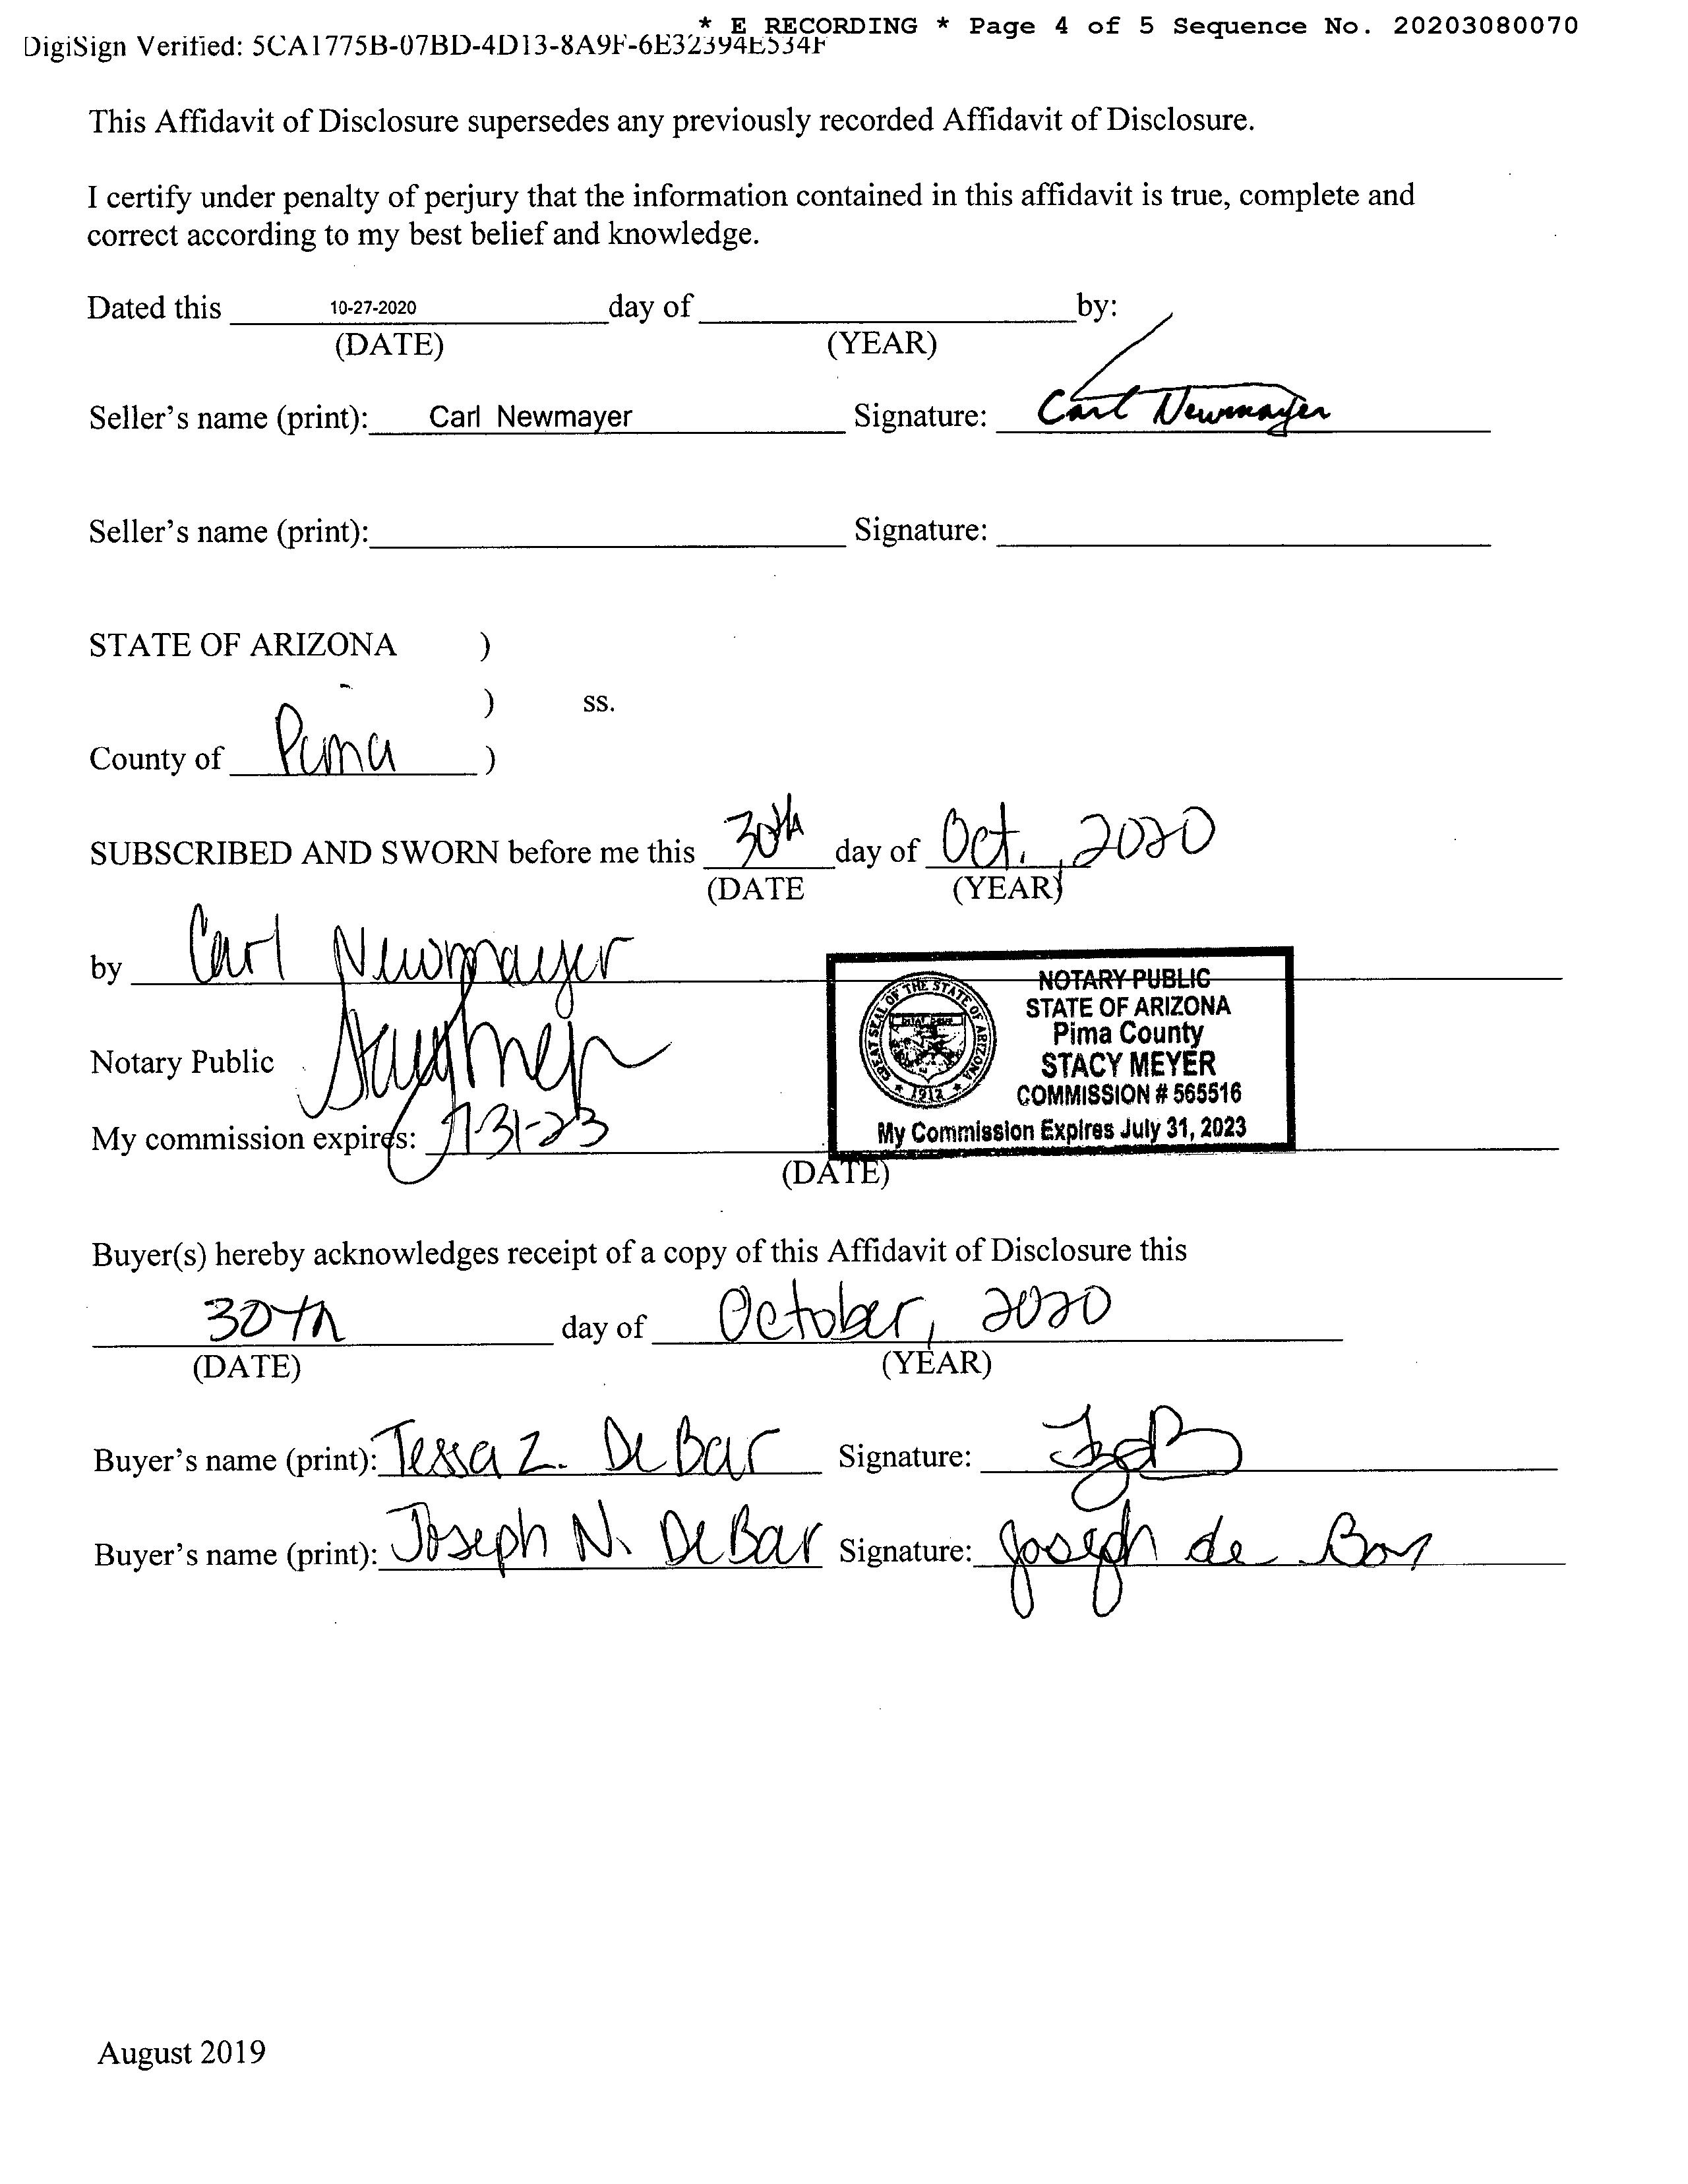 * E RECORDING * Page 4 of 5 Sequence No. 20203080070
DigiSign Verified: 5CA1775B-07BD-4D13-8A9F-6E32394E534F
This Affidavit of Disclosure supersedes any previously recorded Affidavit of Disclosure.
I certify under penalty of perjury that the information contained in this affidavit is true, complete and
correct according to my best belief and knowledge.
Dated this 10-27-2020 day of by:
(DATE) (YEAR)
Seller's name (print): Carl Newmayer Signature: Carl Newmayer
Seller's name (print): Signature:
STATE OF ARIZONA )
) ss.
County of Pima )
SUBSCRIBED AND SWORN before me this 30th day of Oct., 2020
(DATE (YEAR)
by Carl Newmayer
NOTARY PUBLIC
STATE OF ARIZONA
Pima County
STACY MEYER
COMMISSION # 565516
My Commission Expires July 31, 2023
GREAT SEAL OF THE STATE OF ARIZONA
DITAT DEUS
1912
Notary Public
My commission expires: 7-31-23
(DATE)
Buyer(s) hereby acknowledges receipt of a copy of this Affidavit of Disclosure this
30th day of October, 2020
(DATE) (YEAR)
Buyer's name (print): Tessa Z. DeBar Signature:
Buyer's name (print): Joseph N. DeBar Signature: Joseph de Bar
August 2019